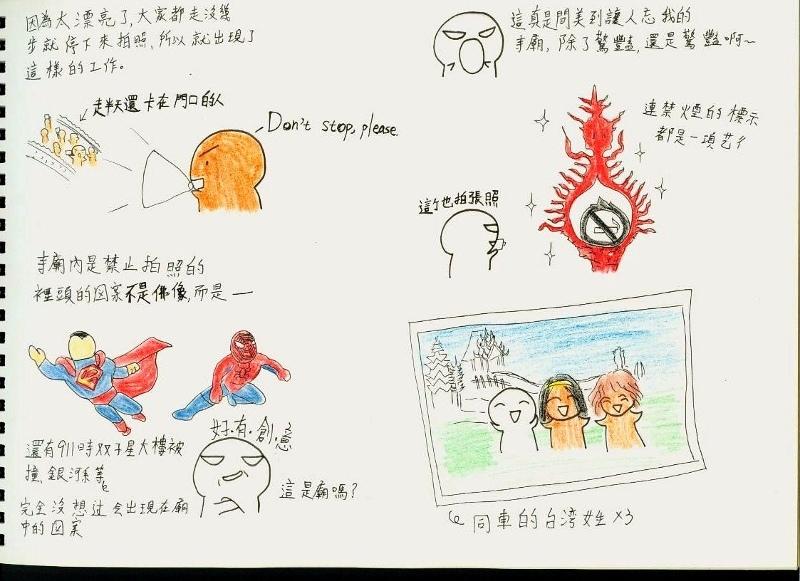 因為太漂亮了,大家都走沒幾
步就停下來拍照,所以就出現了
這樣的工作。
走半天還卡在門口的人
Don't stop, please.
寺廟內是禁止拍照的
裡頭的図案不是佛像,而是一
好.有.創.意
還有911時双子星大樓被
撞、銀河系等。
完全沒想过会出現在廟
中的図案
這是廟嗎?
這真是間美到讓人忘我的
寺廟,除了驚豔,還是驚豔啊~
連禁煙的標示
都是一項艺
這个也拍張照
同車的台湾女生×3